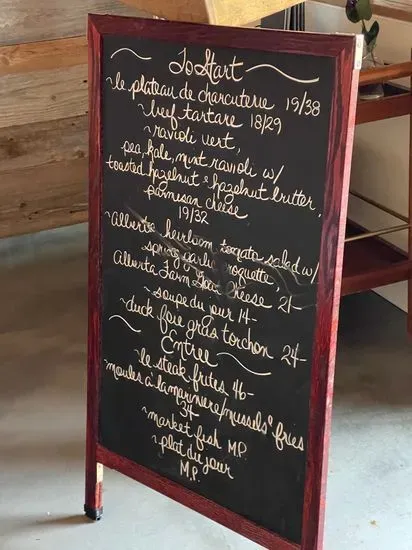 To Start
~le plateau de charcuterie 19/38
~beef tartare 18/29
~ravioli vert,
pea, kale, mint ravioli w/
toasted hazelnut & hazelnut butter,
parmesan cheese
19/32
~Alberta heirloom tomato salad w/
spring garlic roquette,
Alberta Farm Goat cheese 21-
~soupe du jour 14-
~duck foie gras torchon 24-
Entree
~le steak frites 46-
~moules à la mariniere/mussels & fries
34-
~market fish M.P.
~plat du jour
M.P.